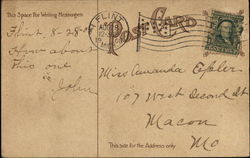 This Space For Writing Messages
FLINT
POST CARD
Flint, 8-28-
How about
This one
John
Miss Amanda
107 West Second St
Macon
Mo
This side for the Address only